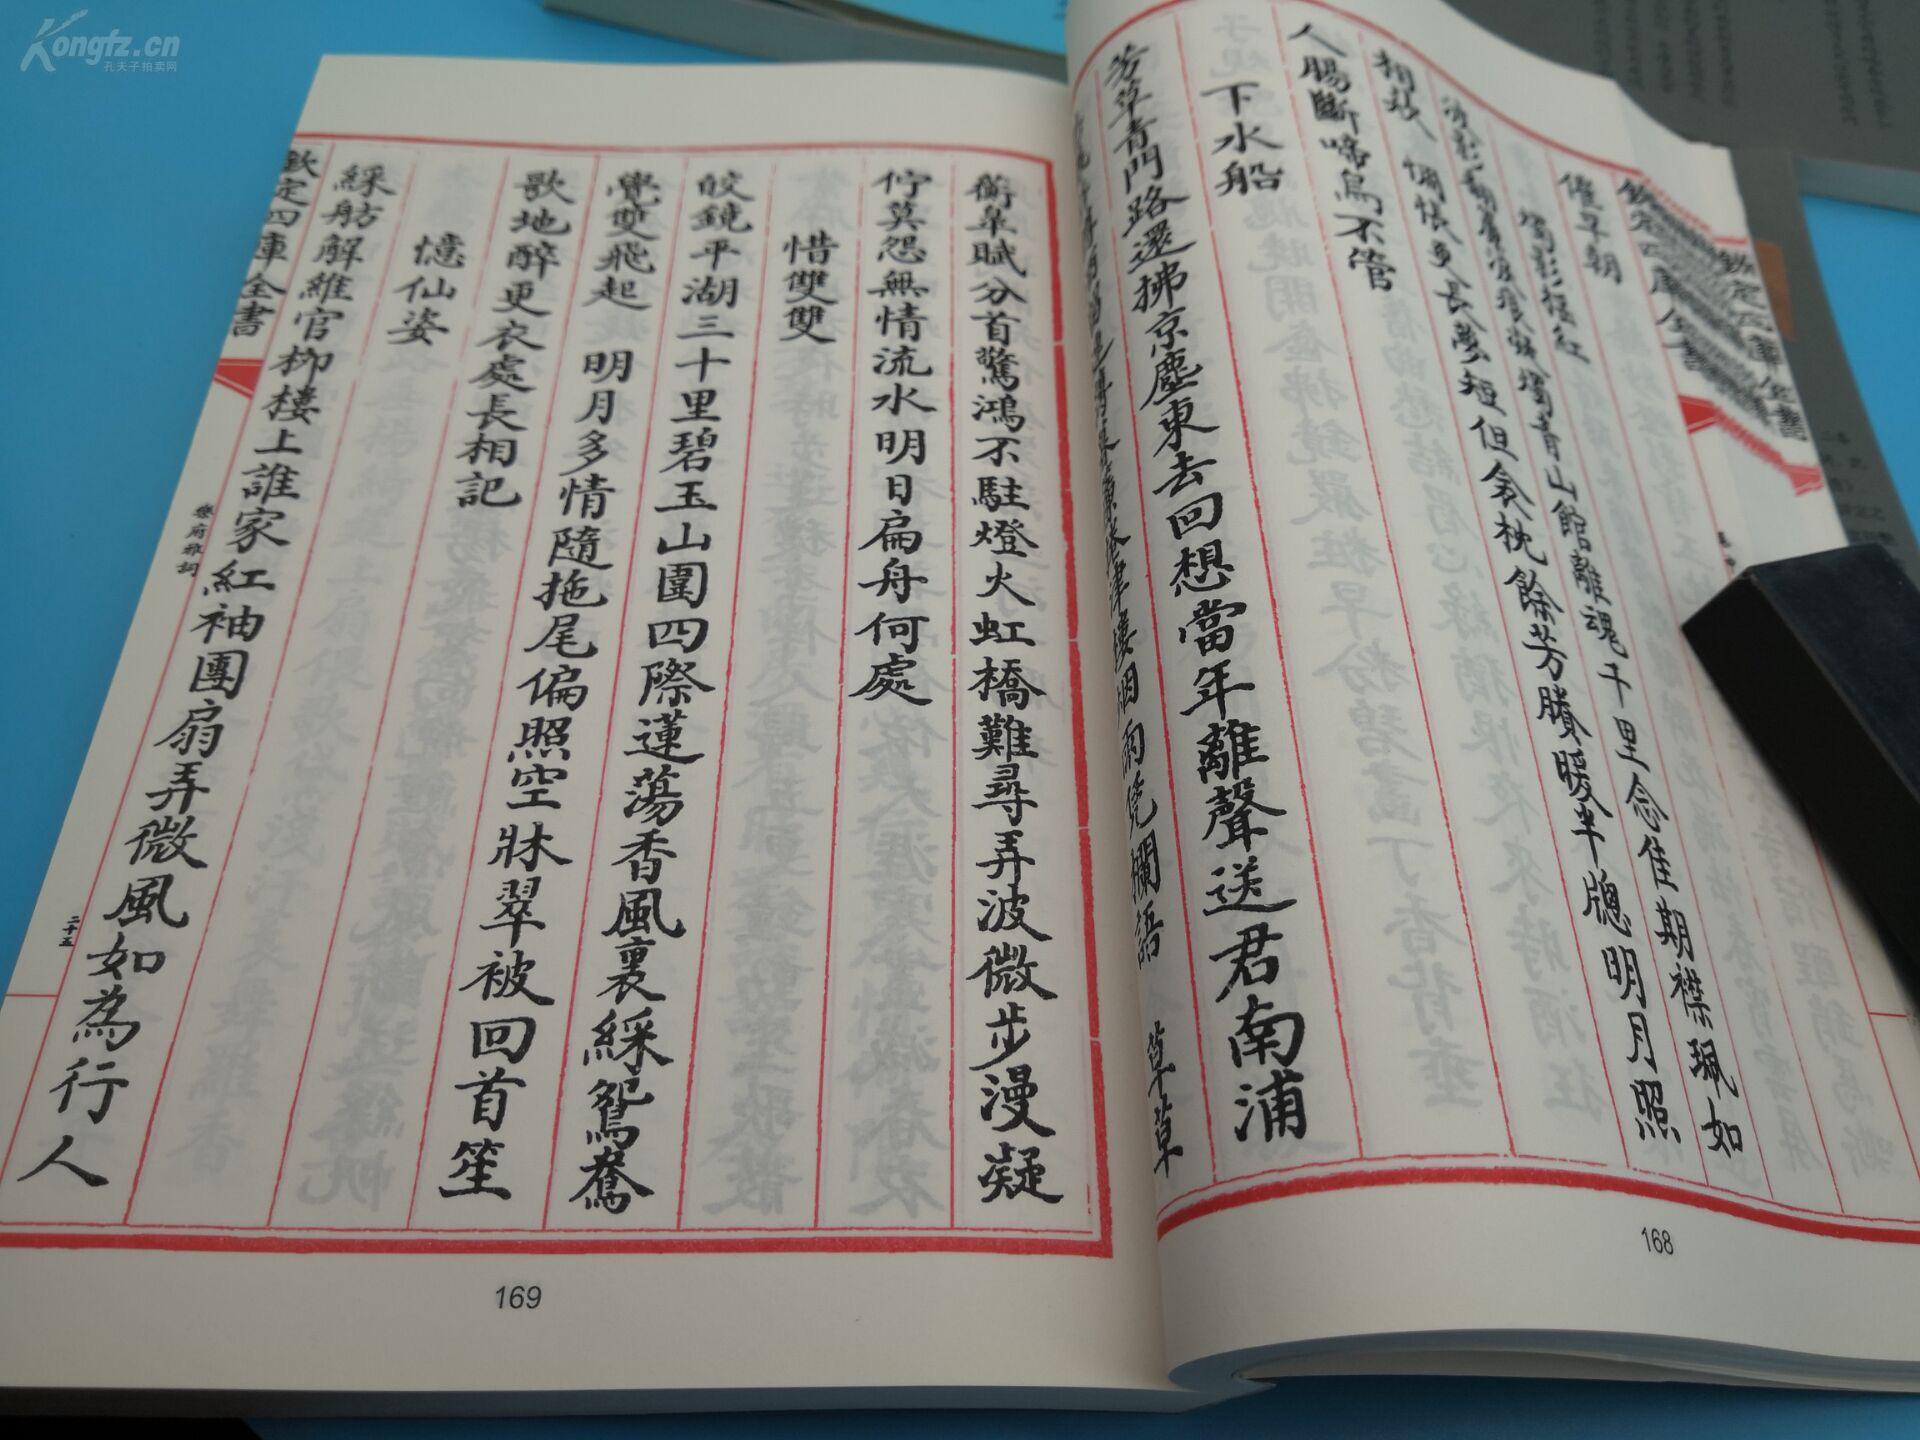 Kongfz.cn
孔夫子拍卖网
欽定四庫全書
催早朝
燭影揺紅
燭青山館離魂千里念佳期襟珮如
相欵 惆悵更長夢短但衾枕餘芳賸暖半牕明月照
人腸斷啼烏不管
下水船
芳草青門路還拂京塵東去回想當年離聲送君南浦
津樓烟雨凭欄語 草草
168
蘅臯賦分首驚鴻不駐燈火虹橋難尋弄波微步漫凝
佇莫怨無情流水明日扁舟何處
惜雙雙
皎鏡平湖三十里碧玉山圍四際蓮蕩香風裏綵鴛鴦
覺雙飛起 明月多情隨拖尾偏照空牀翠被回首笙
歌地醉更衣處長相記
憶仙姿
綵舫解維官栁樓上誰家紅袖團扇弄微風如為行人
欽定四庫全書
樂府雅詞
二十五
169